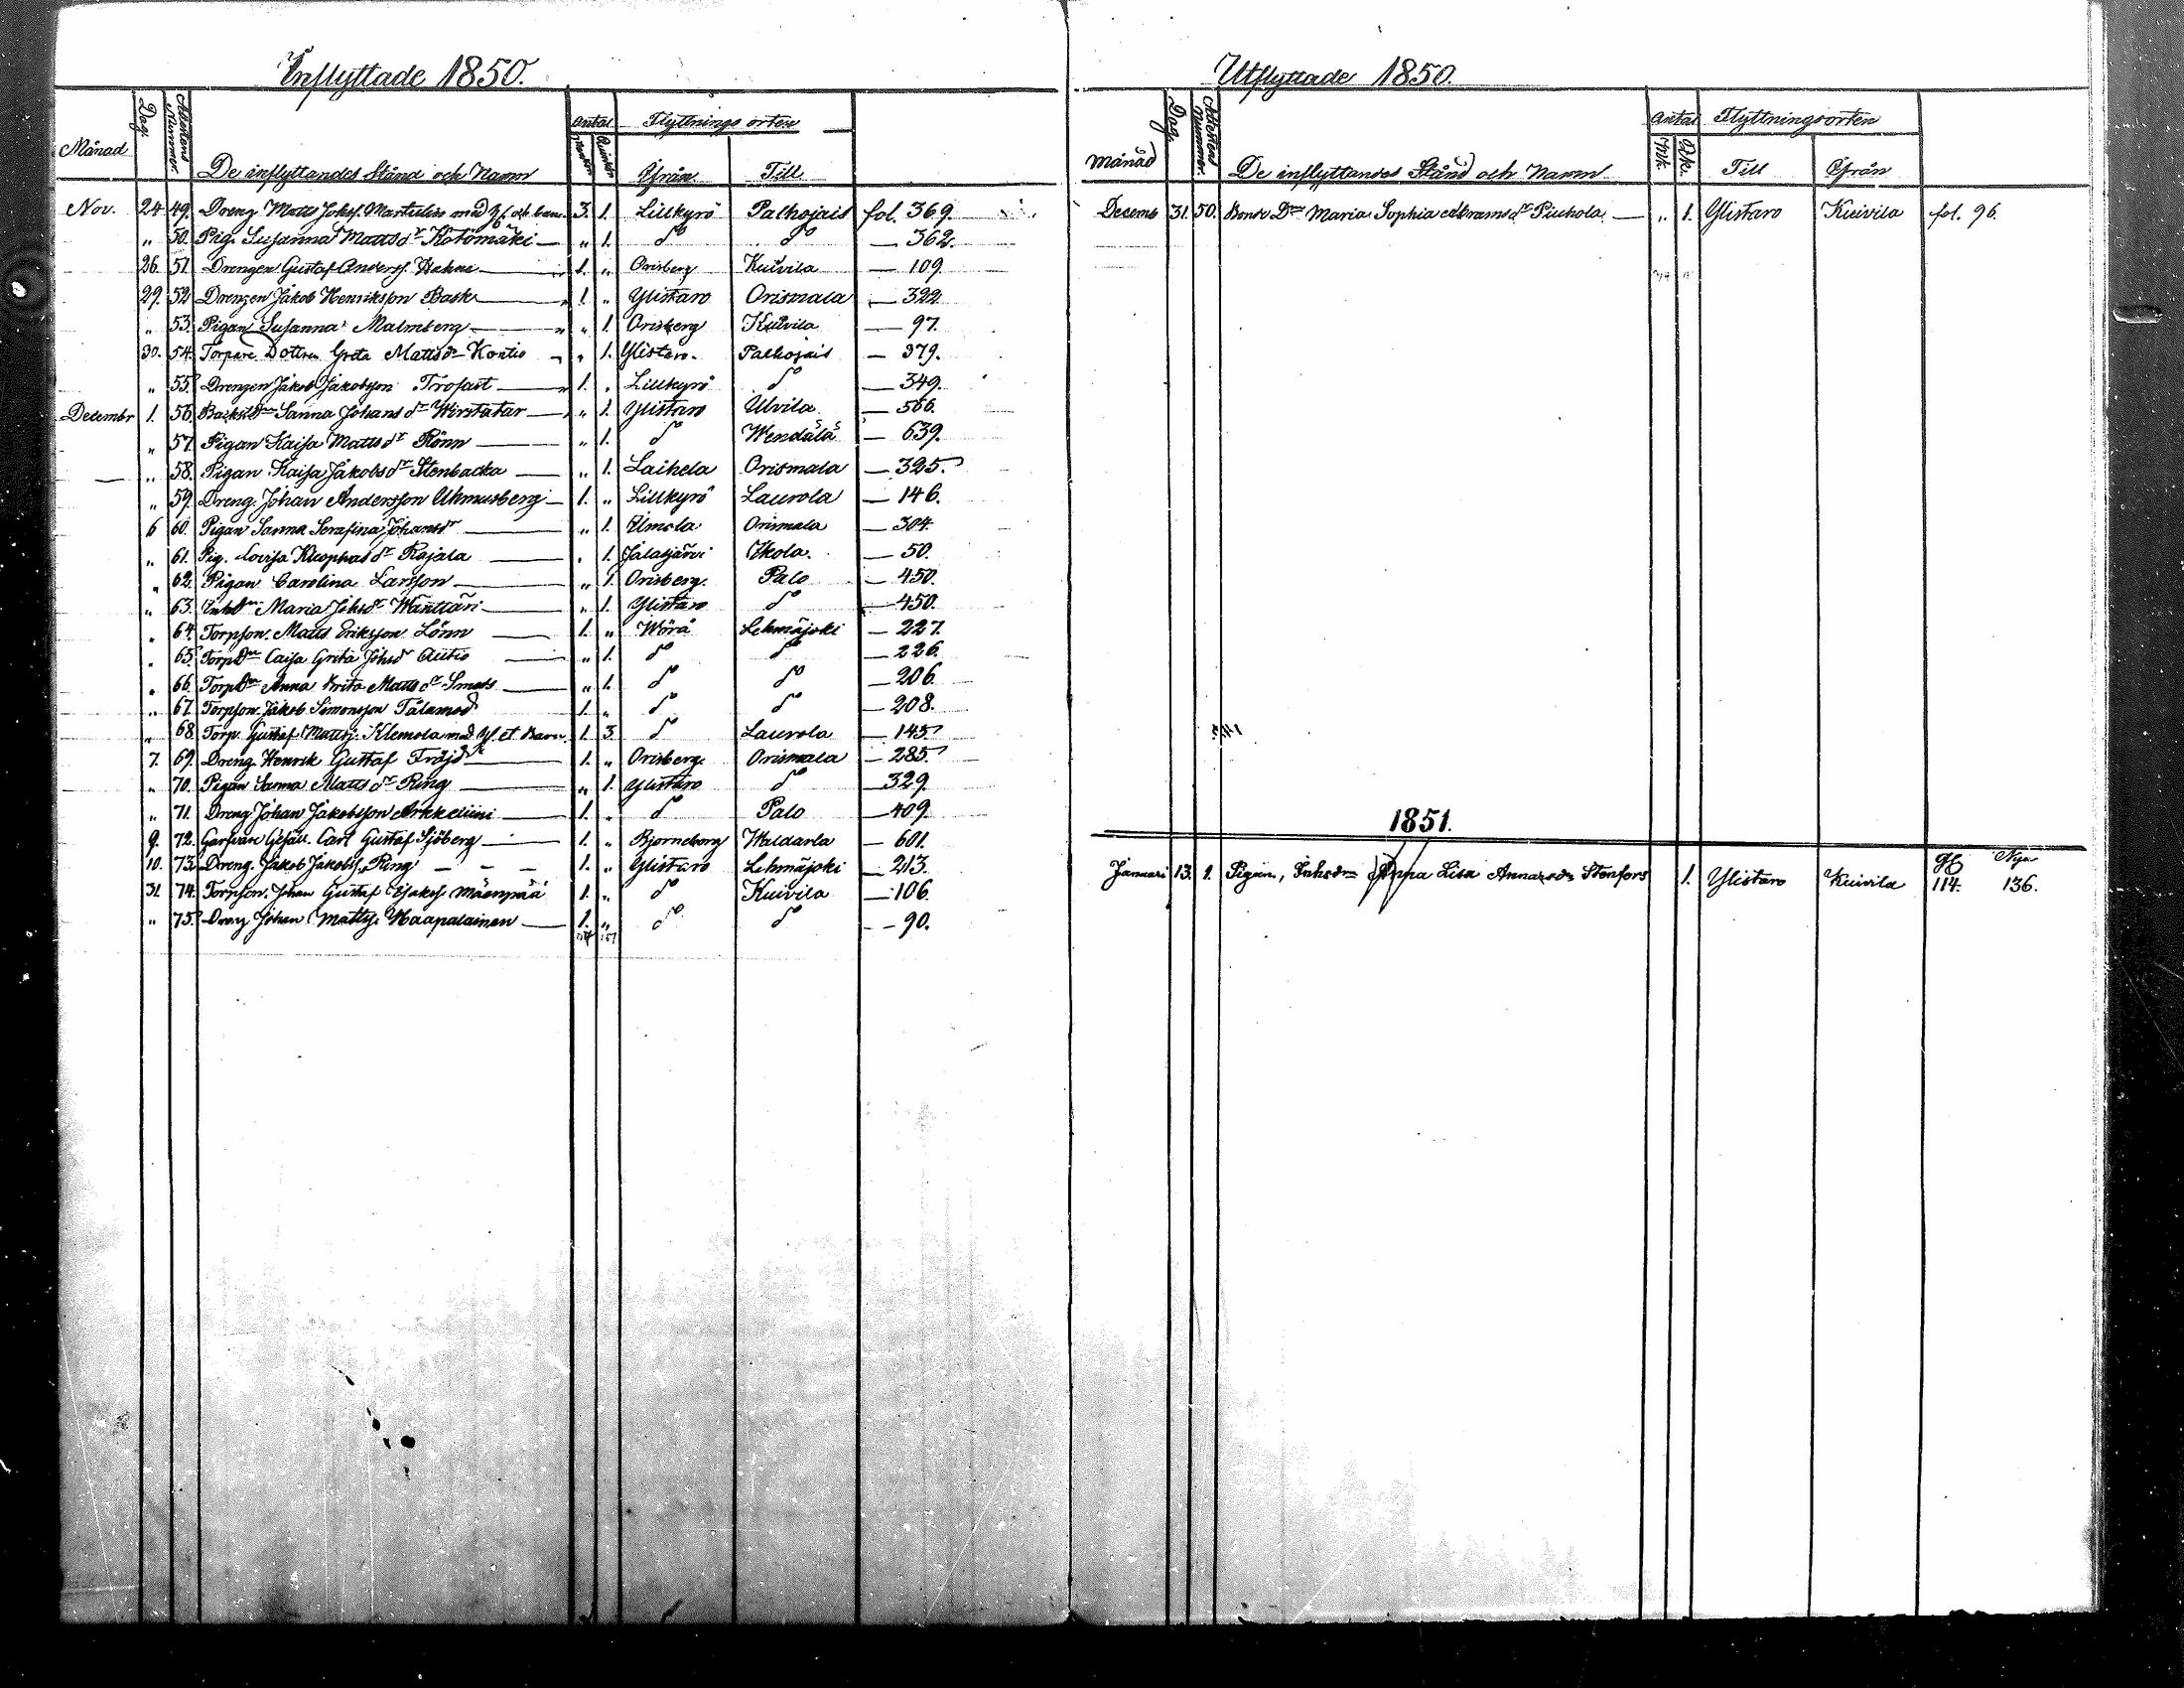 Inflyttade 1850.
Månad Dag. Attestens Nummer. De inflyttandes Stånd och Namn Antal Mankön Qvinkön Flyttnings orten Ifrån Till
Nov. 24 49. Dreng Matts Jakobs. Martulin med H. och barn 3. 1. Lillkyrö Palhojais fol. 369.
" 50. Pig. Susanna Matts dr Kotomäki — " 1. do do — 362.
26. 51. Drengen Gustaf Anderss. Hahne — 1. " Orisberg Kuivila — 109
29. 52. Drengen Jakob Henriksson Bask — 1. " Ylistaro Orismala — 322
" 53. Pigan Susanna Malmberg — " 1. Orisberg Kuivila — 97.
30. 54. Torpare Dottren Greta Matts dr Kontio " 1. Ylistaro. Palhojais — 379.
" 55. Drengen Jakob Jakobsson Trofast — 1. " Lillkyrö do — 349.
Decembr 1. 56. Sanna Johans dr — " 1. Ylistaro Ulvila — 566.
" 57. Pigan Kaisa Matts dr Rönn — " 1. do Wendälä — 639.
" 58. Pigan Kaisa Jakobs dr Stenbacka — " 1. Laihela Orismala — 325.
" 59. Dreng. Johan Andersson — 1. " Lillkyrö Laurola — 146.
6 60. Pigan Sanna Serafina Johansdr — " 1. Ilmola Orismala — 304.
" 61. Pig. Lovisa Kleophas dr Rajala — " 1. Jalasjärvi Ikola. — 50.
" 62. Pigan Carolina Larsson — " 1. Orisberg. Palo — 450.
" 63. Maria Johs dr Wänttäri — " 1. Ylistaro do — 450.
" 64. Torpson. Matts Eriksson Lönn — 1. " Wörå Lehmäjoki — 227.
" 65. TorpDn Caisa Greta Johsdr Autio — " 1. do do — 226.
" 66. TorpDn Anna Brita Matts dr Smets — " 1. do do — 206.
" 67. Torpson. Jakob Simonsson Tålamod 1. " do do — 208.
" 68. Torp. Gustaf Mattsj. Klemola med H. et Barn. 1. 3. do Laurola — 145.
7. 69. Dreng. Henrik Gustaf Fröjd — 1. " Orisberg. Orismala — 285.
" 70. Pigan Sanna Matts dr Ring — " 1. Ylistaro do — 329.
" 71. Dreng Johan Jakobsson — 1. " do Palo — 409.
9. 72. Garfvare Gesäll. Carl Gustaf Sjöberg — 1. " Björneborg Waldarla — 601.
10. 73. Dreng. Jakob Jakobss. Ring — 1. " Ylistaro Lehmäjoki — 213.
31. 74. Torpson. Johan Gustaf Mäenpää 1. " do Kuivila — 106.
" 75. Dreng Johan Mattss. Haapalainen — 1. " do do — 90.
Utflyttade 1850.
Månad Dag. Attestens Nummer De inflyttandes Stånd och Namn Antal Mk. Qk. Flyttningsorten Till Ifrån
Decemb 31. 50. Bonde Dn Maria Sophia Abrams dr Piuhola. — " 1. Ylistaro Kuivila fol. 96.
1851.
Januari 13. 1. Pigan, Anna Lisa Stenfors 1. Ylistaro Kuivila 114. Nya 136.